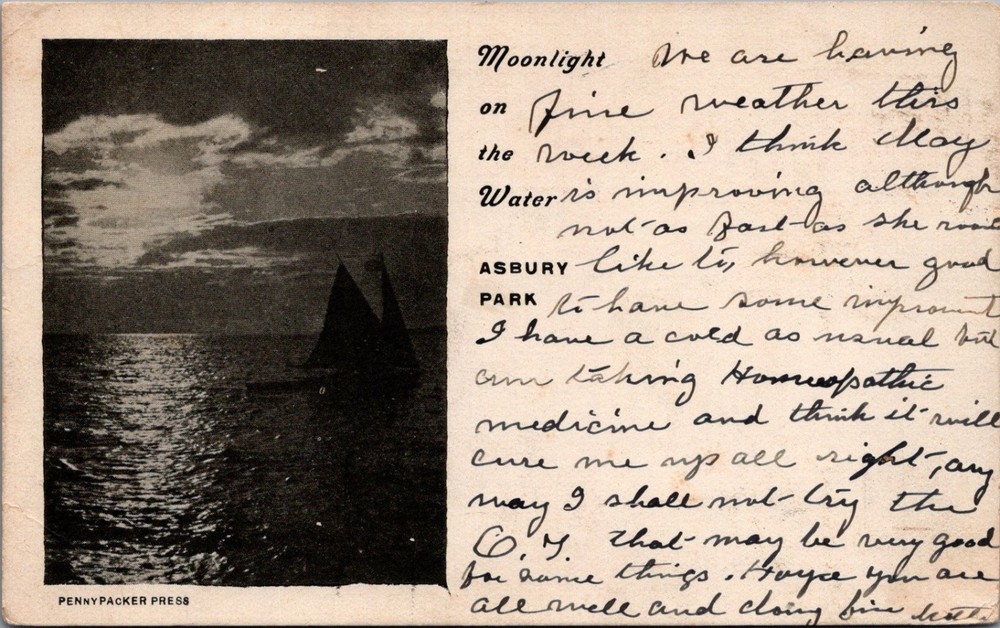 Moonlight
on
the
Water
ASBURY
PARK
We are having
fine weather this
week. I think May
is improving although
not as fast as she
like to, however good
to have some
I have a cold as usual but
am taking Homeopathic
medicine and think it will
cure me up all right, any
way I shall not try the
that may be very good
for some things. Hope you are
all well and doing fine
PENNYPACKER PRESS